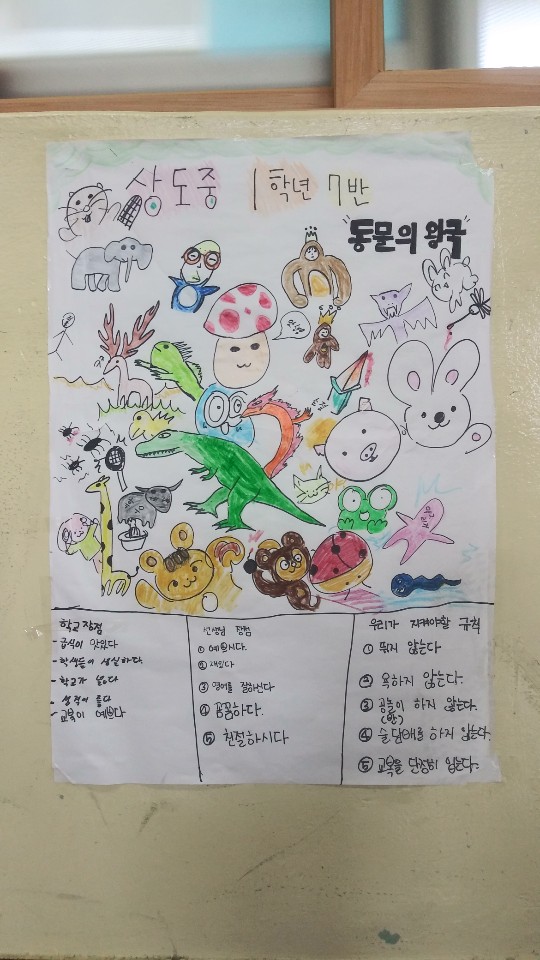 상도중 1학년 7반
"동문의 왕국"
학교 장점
- 급식이 맛있다
- 학생들이 성실하다.
- 학교가 넓다
- 성적이 좋다
- 교복이 예쁘다
선생님 장점
① 예쁘시다.
② 재밌다
③ 영어를 잘하신다
④ 꼼꼼하다.
⑤ 친절하시다
우리가 지켜야할 규칙
① 뛰지 않는다
② 욕하지 않는다.
③ 공놀이 하지 않는다.
(반)
④ 술담배를 하지 않는다.
⑤ 교복을 단정히 입는다.